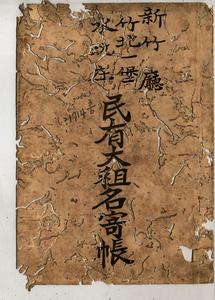 新竹廳
竹北一堡
水坑庄
民有大租名寄帳